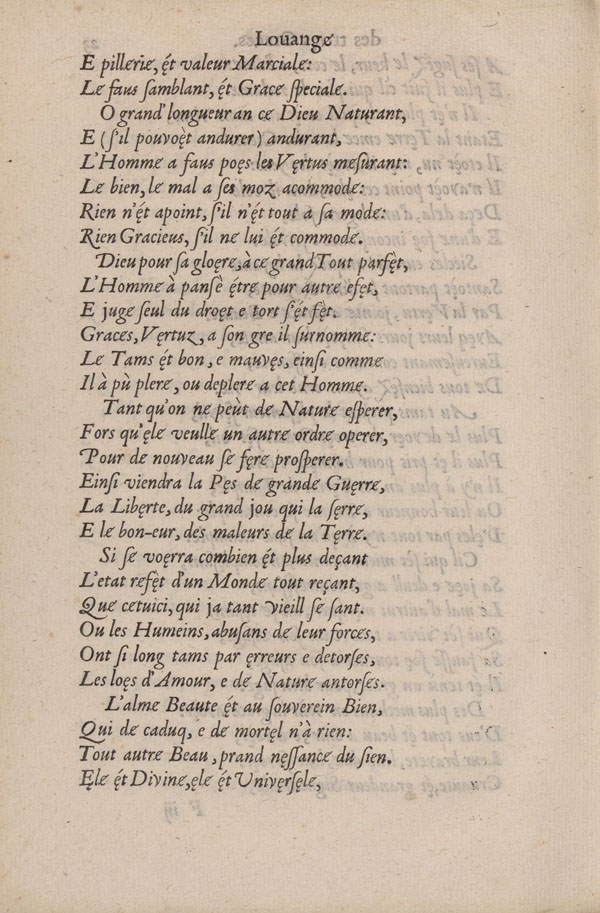 Louange
E pillerie, ę́t valeur Marciale:
Le faus ſamblant, ę́t Grace ſpeciale.
O grand' longueur an ce Dieu Naturant,
E (ſ'il pouvoę̀t andurer) andurant,
L'Homme a faus poęs les Vęrtus meſurant:
Le bien, le mal a ses moz acommode:
Rien n'ę́t apoint, ſ'il n'ę́t tout a sa mode:
Rien Gracieus, ſ'il ne lui ę́t commode.
Dieu pour sa gloęre, à ce grand Tout parfęt,
L'Homme à pansè ę́tre pour autre efęt,
E juge seul du droęt e tort s'ę́t fęt.
Graces, Vęrtuz, a son gre il surnomme:
Le Tams ę́t bon, e mauvęs, einſi comme
Il à pù plere, ou deplere a cet Homme.
Tant qu'on ne peùt de Nature eſperer,
Fors qu'ęle veulle un autre ordre operer,
Pour de nouveau se fęre proſperer.
Einſi viendra la Pęs de grande Guęrre,
La Libęrte, du grand jou qui la sęrre,
E le bon-eur, des maleurs de la Tęrre.
Si se voęrra combien ę́t plus deçant
L'etat refęt d'un Monde tout reçant,
Que cetuici, qui ja tant vieill se sant.
Ou les Humeins, abusans de leur forces,
Ont si long tams par ęrreurs e detorses,
Les loęs d'Amour, e de Nature antorses.
L'alme Beaute ę́t au souverein Bien,
Qui de caduq, e de mortęl n'à rien:
Tout autre Beau, prand nęſſance du sien.
Ęle ę́t Divine, ęle ę́t Univęrsęle,